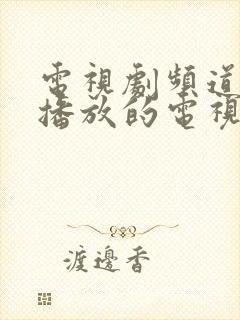 電視劇頻道
播放的電視
渡邊香